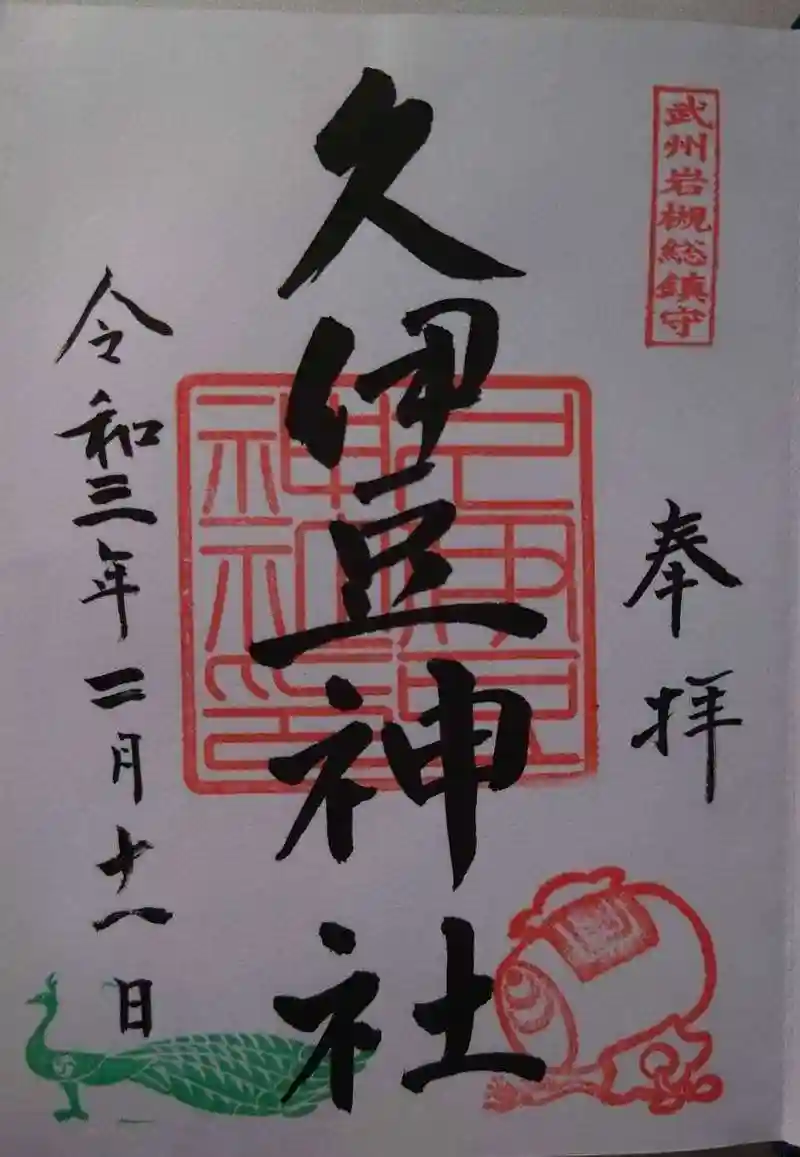 武州岩槻総鎮守
奉拝
久伊豆神社
久伊豆
神社印
令和三年二月十一日